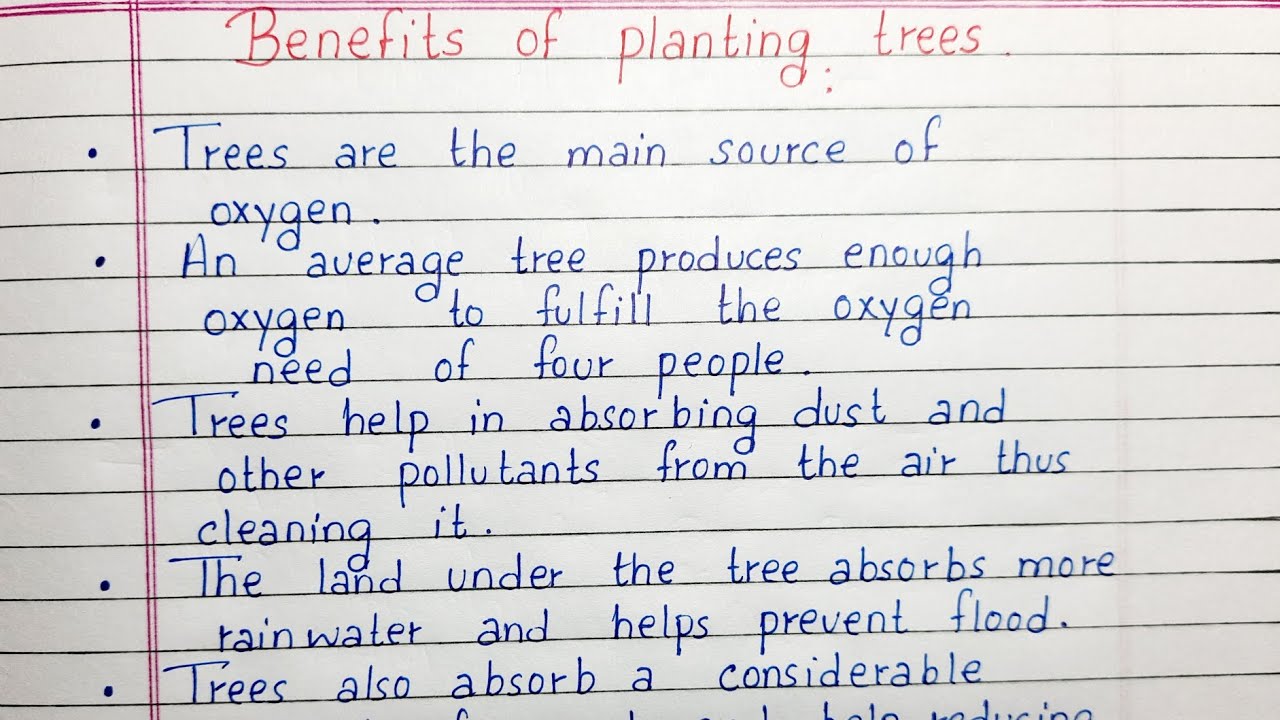 Benefits of planting trees.
• Trees are the main source of
oxygen.
• An average tree produces enough
oxygen to fulfill the oxygen
need of four people.
• Trees help in absorbing dust and
other pollutants from the air thus
cleaning it.
• The land under the tree absorbs more
rainwater and helps prevent flood.
• Trees also absorb a considerable
help reducing